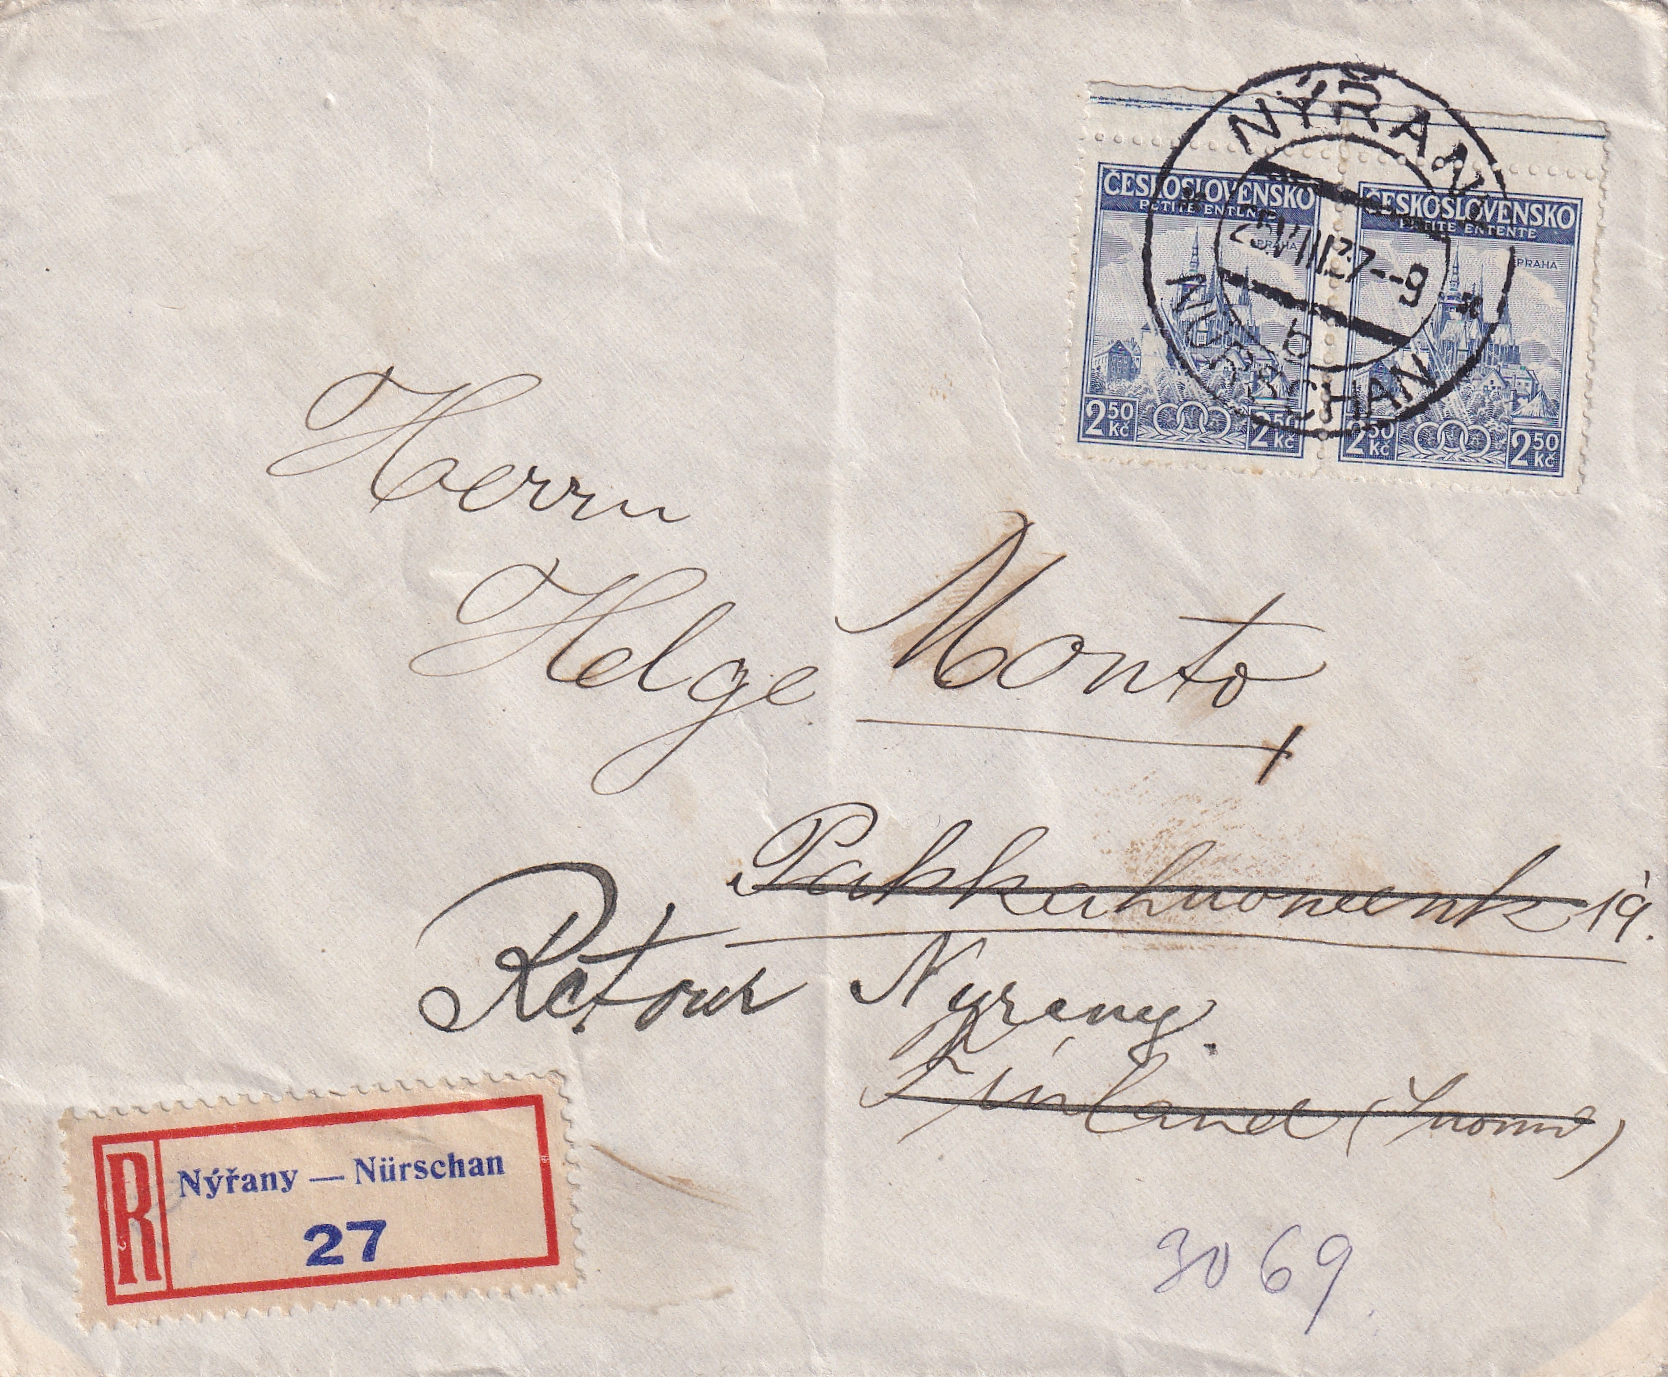 NÝŘANY
25.VIII.37--9
b
NÜRSCHAN
ČESKOSLOVENSKO
PETITE ENTENTE
PRAHA
2 50 Kč
2 50 Kč
ČESKOSLOVENSKO
PETITE ENTENTE
PRAHA
2 50 Kč
2 50 Kč
Herrn
Helge Monto
19.
Retour Nyrany.
Finland (Suomi)
R
Nýřany — Nürschan
27
3069.